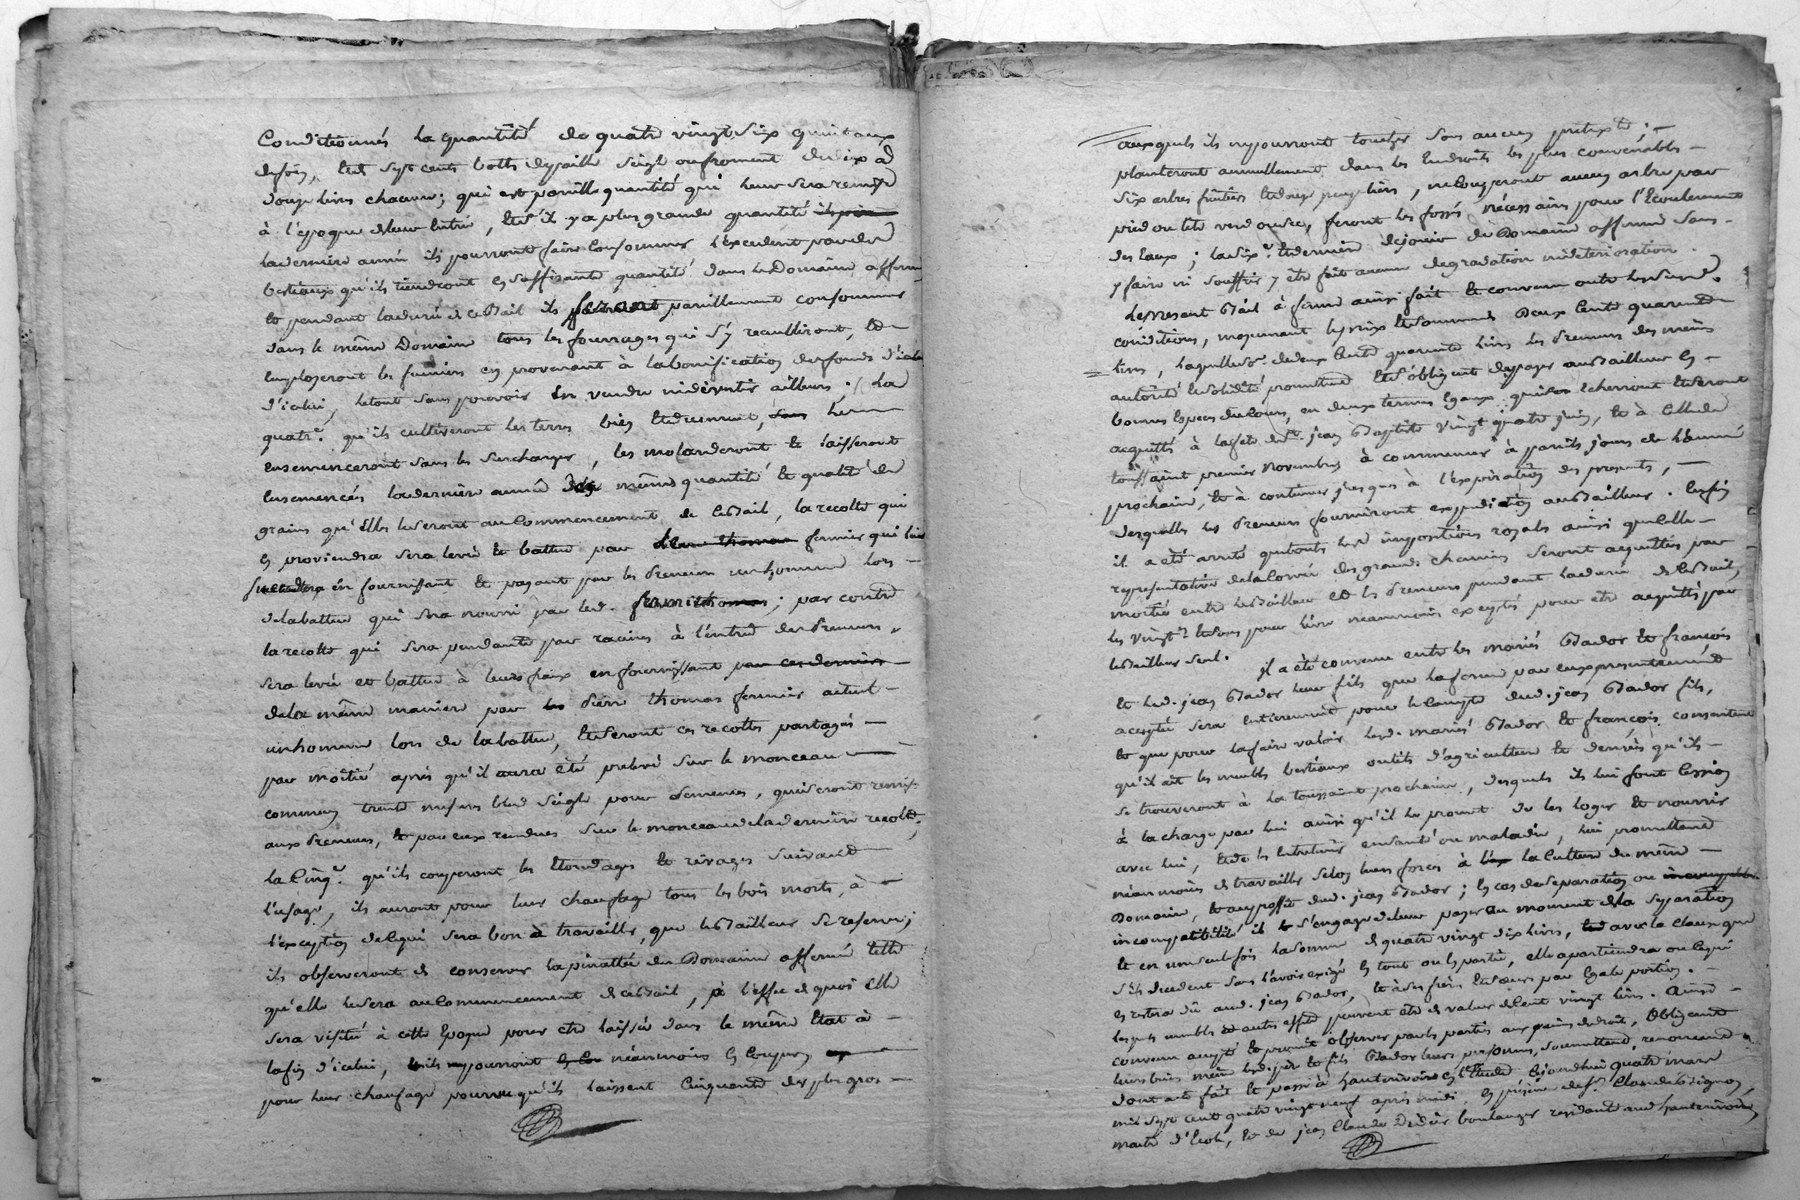 Conditionnés la quantité de quatre vingt six quintaux
de foin, et sept cents bottes de paille seigle ou froment de dix à
douze livres chacune; qui est pareille quantité qui leur sera remise
à l'epoque de leur entrée, et s'il y a plus grande quantité
la derniere année ils pourront faire consommer l'excedent par des
bestiaux qu'ils tiendront en suffisante quantité dans le Domaine affermé
et pendant la durée de ce Bail ils feront pareillement consommer
dans le même Domaine tous les fourrages qui s'y recueilliront, et
employeront les fumiers en provenant à la bonification des fonds d'icelui
d'icelui, le tout sans pouvoir en vendre ni divertir ailleurs; la
quatr.e qu'ils cultiveront les terres bien et duement, les
ensemenceront sans les surcharger, les et laisseront
ensemencés la derniere année de même quantité et qualité de
grains qu'elles le seront au Commencement de ce Bail, la recolte qui
en proviendra sera levée et battue par fermier qui leur
succedera en fournissant et payant par les Preneurs un homme lors
de la battue qui sera nourri par led. ; par contre
la recolte qui sera pendante par racines à l'entrée des Preneurs
sera levée et battue à leurs fraix en fournissant par ces derniers
de la même maniere par Pierre thomas fermier actuel
un homme lors de la battue, et seront ces recoltes partagés
par moitié après qu'il aura eté prelevé sur le monceau
commun trente mesures bled seigle pour semences, qui seront remises
aux Preneurs, et par eux rendues sur le monceau de la derniere recolte;
la Cinq.e qu'ils couperont les Etondages et rivages suivant
l'usage, ils auront pour leur chaufage tous les bois morts, à
l'exception de ce qui sera bon à travailler, que le Bailleur se reserve;
ils observeront de conserver la du Domaine affermé telle
qu'elle le sera au Commencement de ce Bail, à l'effet de quoi elle
sera visitée à cette Epoque pour etre laissée dans le même Etat à
la fin d'icelui, ils pourront néanmoins en couper
pour leur chaufage pourvu qu'ils laissent Cinquante des plus gros
auxquels ils ne pourront toucher sous aucun pretexte;
planteront annuellement dans les Endroits les plus convenables
six arbres fruitiers et deux peupliers, ne couperont aucun arbre par
pied ou tête verd ou sec, feront les fossés nécessaires pour l'Ecoulement
des Eaux; la six.e et derniere de jouir du Domaine affermé sans
y faire ni souffrir y etre fait aucune degradation ni deterioration.
Le present Bail à ferme ainsi fait et convenu outre les susd.
conditions, moyennant le prix et somme de Deux Cents quarante
livres, laquelle de deux Cents quarante livres les Preneurs des mêmes
autorité et solidité promettent et s'obligent de payer au Bailleur en
bonnes Especes de Cours, en deux termes Egaux qui echerront et seront
acquittés à la fete de St. jean Baptiste vingt quatre juin, et à Celle de
toussaint premier novembre à commencer à pareils jours de l'année
prochaine, et à continuer jusques à l'expiration des presentes,
desquelles les Preneurs fourniront expedition au Bailleur. Enfin
il a été arrêté que toutes les impositions royales ainsi que celle
representative de la Corvée des grands chemins seront acquittées par
moitié entre le Bailleur et les Preneurs pendant la durée de ce Bail,
les vingt.e et sous pour livre neanmoins exceptés pour etre acquittés par
le Bailleur seul. Il a été convenu entre les mariés Bador et françois
et led. jean Bador leur fils que la ferme par eux presentement
acceptée sera Entierement pour le Compte dud. jean Bador fils,
et que pour la faire valoir lesd. mariés Bador et françois consentent
qu'il ait les meubles bestiaux outils d'agriculture et denrées qu'ils
se trouveront à la toussaint prochaine, desquels ils lui font Cession
à la charge par lui ainsi qu'il le promet de les loger et nourrir
avec lui, et de les entretenir en santé ou maladie, lui promettant
néanmoins de travailler selon leurs forces à la Culture du même
Domaine, et au proffit dud. jean Bador; en cas de separation ou
incompatibilité il s'engage de leur payer au moment de la separation
et en une seul fois la somme de quatre vingt dix livres, avec la clause que
s'ils decedent sans l'avoir exigé en tout ou en partie, elle apartiendra ou ce qui
en restera dû aud. jean Bador, et à ses freres et soeurs par Egale portion.
Lesquels meubles et autres effets peuvent etre de valeur de Cent vingt livres. Ainsi
convenu accepté et promis observer par les parties aux peines de droit, obligeant
leurs biens même led. pere et fils Bador leurs personnes, soumettant, renonceant
dont acte fait et passé à hauterivoire en l'Etude cejourdhui quatre mars
mil sept cent quatre vingt neuf après midi. En présence de S.r Claude
maitre d'Ecole, et de jean Claude Didier boulanger residant aud. hauterivoire,